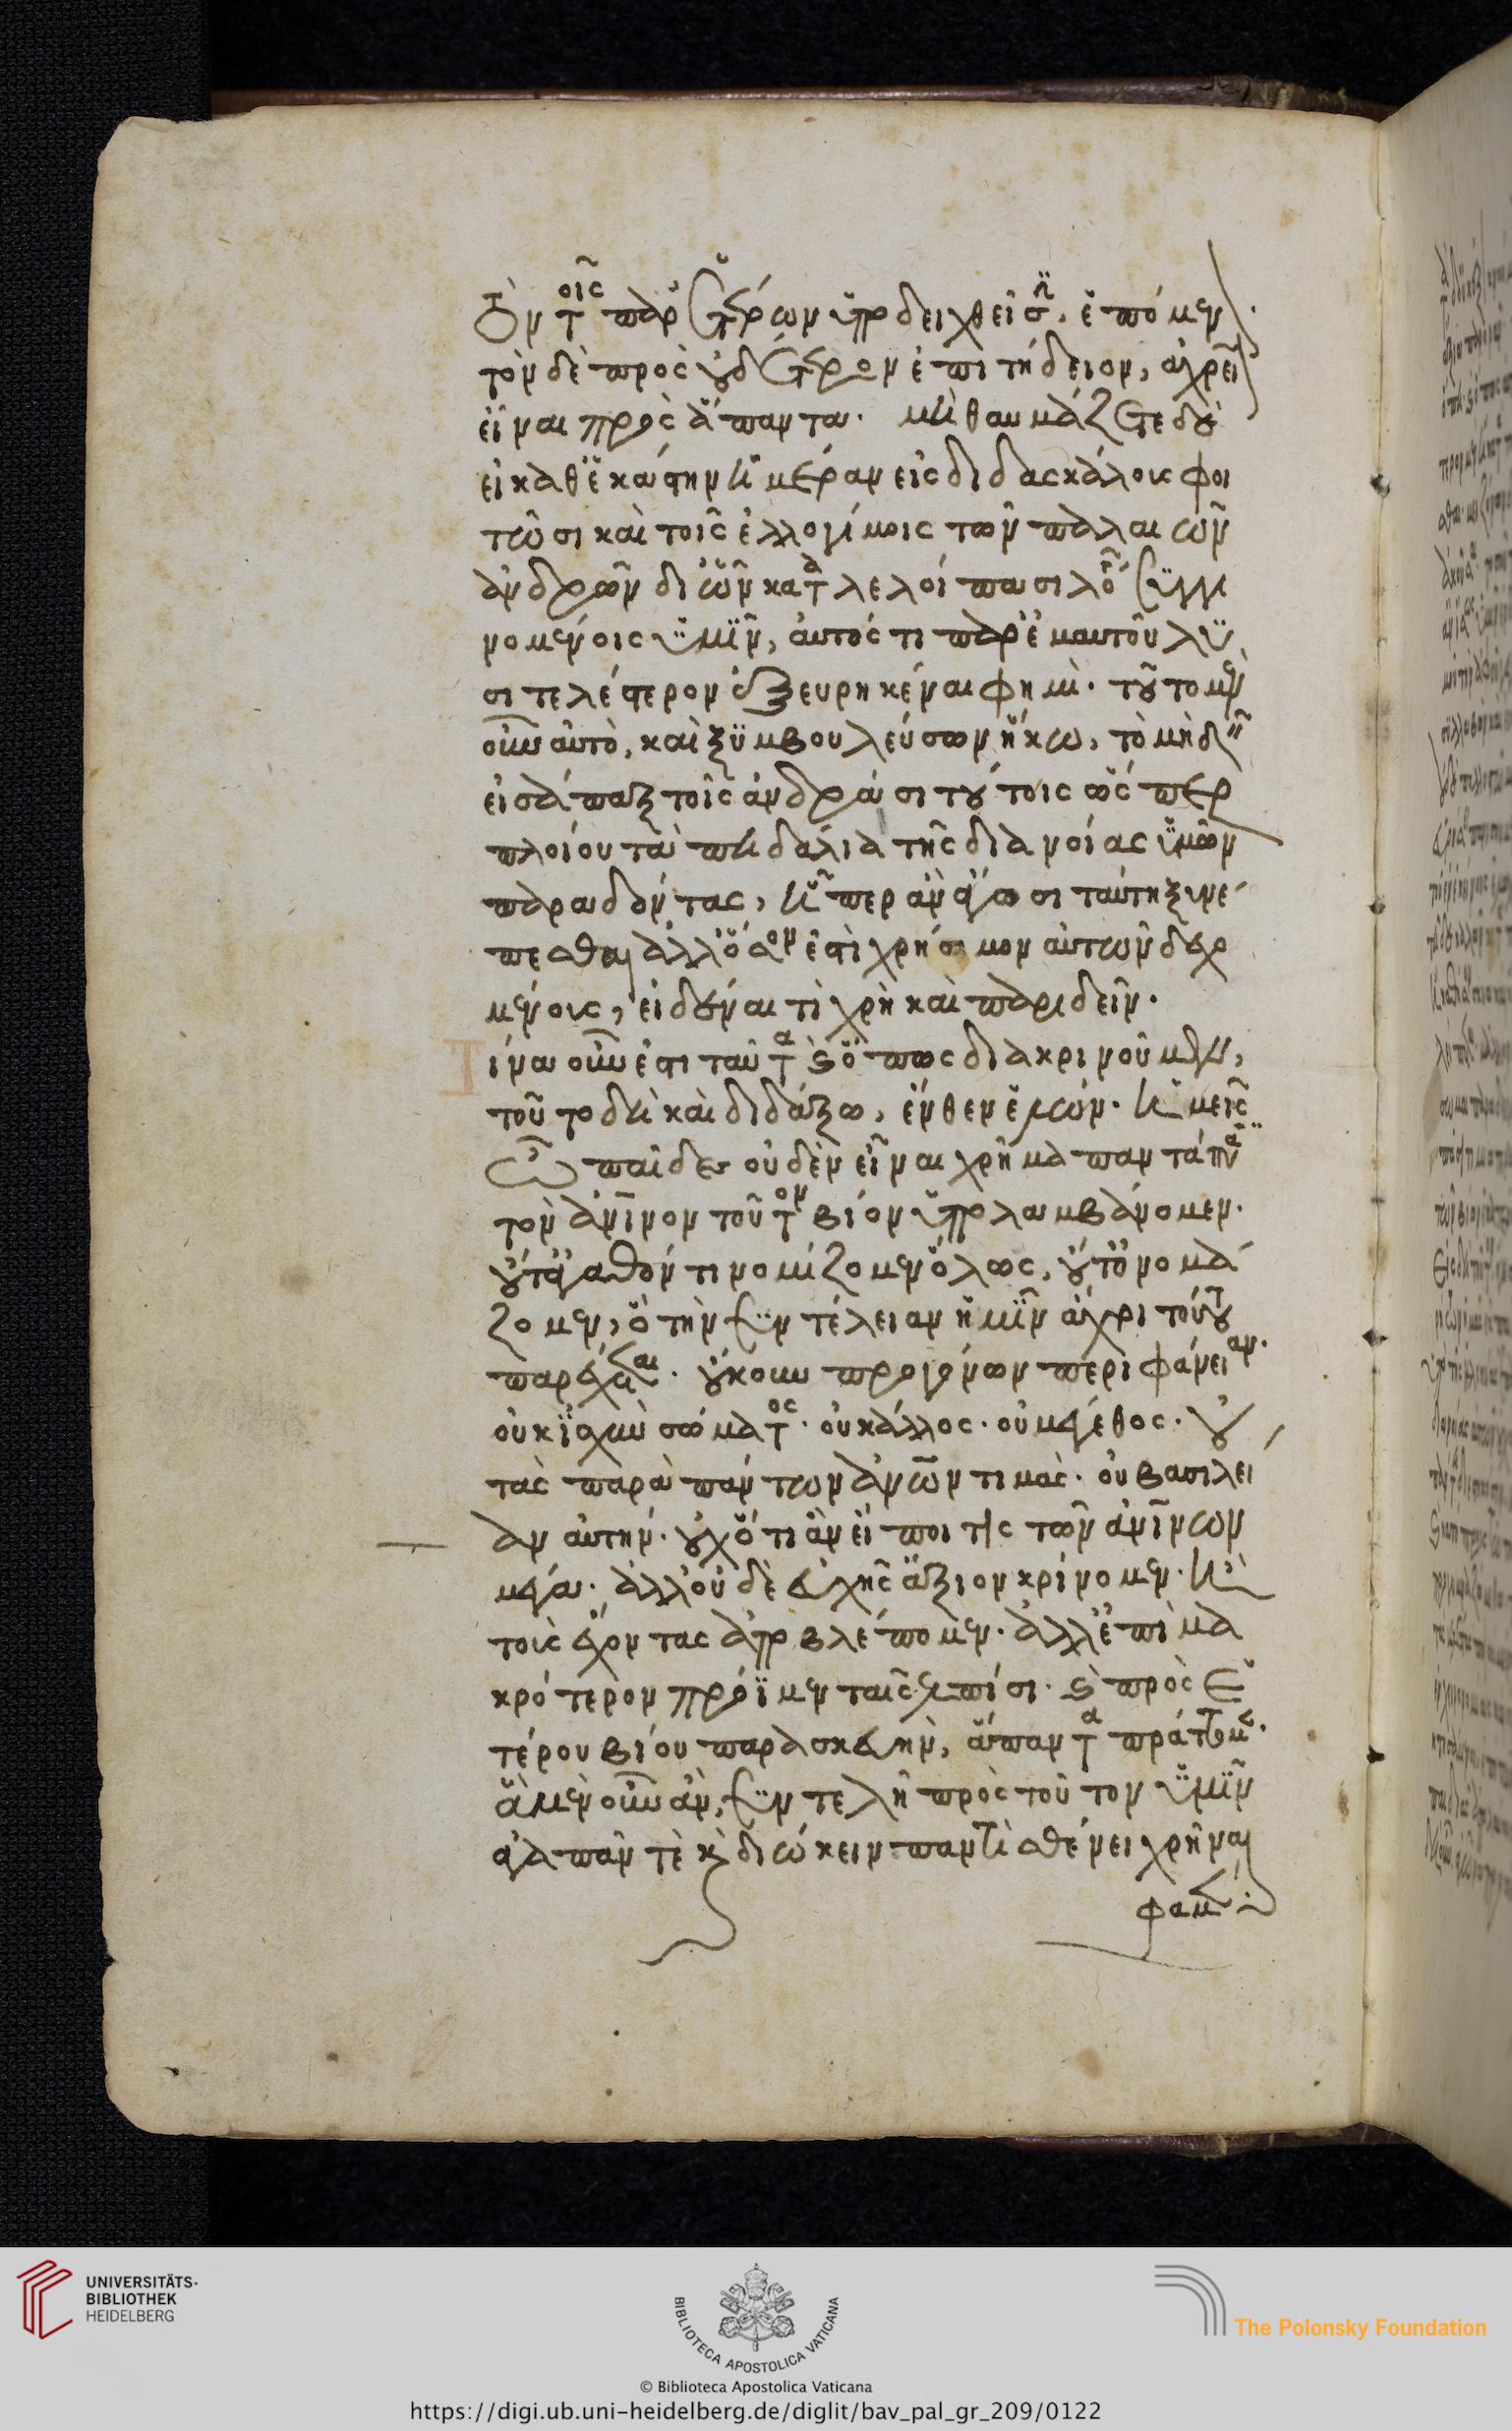 ὸν τοῖς παρ' ἑτέρων ὑποδειχθεῖσιν ἑπόμεν
τὸν δὲ πρὸς οὐδέτερον ἐπιτήδειον, ἀχρεῖ
εἶναι πρὸς ἅπαντα. μὴ θαυμάζετε δὲ
εἰ καθ' ἑκάστην ἡμέραν εἰς διδασκάλους φοι
τῶσι καὶ τοῖς ἐλλογίμοις τῶν παλαιῶν
ἀνδρῶν δι' ὧν καταλελοίπασι λόγων συγγι
νομένοις ὑμῖν, αὐτός τι παρ' ἐμαυτοῦ λυ
σιτελέστερον ἐξευρηκέναι φημὶ. τοῦτο μὲν
οὖν αὐτὸ, καὶ ξυμβουλεύσων ἥκω, τὸ μὴ δεῖν
εἰσάπαξ τοῖς ἀνδράσι τούτοις ὥσπερ
πλοίου τὰ πηδάλια τῆς διανοίας ὑμῶν
παραδόντας, ᾗπερ ἂν ἄγωσι ταύτῃ ξυνέ
πεσθαι ἀλλ' ὅσον ἐστὶ χρήσιμον αὐτῶν δεχο
μένους, εἰδέναι τὶ χρὴ καὶ παριδεῖν.
ίνα οὖν ἐστι ταῦτα καὶ ὅπως διακρινοῦμεν,
τοῦτο δὴ καὶ διδάξω, ἔνθεν ἑλών. ἡμεῖς
ὦ παῖδες οὐδὲν εἶναι χρῆμα παντάπασι
τὸν ἀνινον τοῦτον βίον ὑπολαμβάνομεν.
οὔτ' ἀγαθόν τι νομίζομεν ὅλως, οὔτ' ὀνομά
ζομεν, ὃ τὴν συντέλειαν ἡμῖν ἄχρι τούτου
παρέχεται. οὔκουν προγόνων περιφάνειαν.
οὐκ ἰσχὺν σώματος. οὐ κάλλος. οὐ μέγεθος. οὐ
τὰς παρὰ πάντων ἀνων τιμάς. οὐ βασιλεί
αν αὐτήν. οὐχ ὅτι ἂν εἴποι τίς τῶν ἀνίνων
μέγα. ἀλλ' οὐδὲ εὐχῆς ἄξιον κρίνομεν. ἢ
τοὺς ἔχοντας ἀποβλέπομεν. ἀλλ' ἐπὶ μα
κρότερον πρόϊμεν ταῖς ἐλπίσι. καὶ πρὸς ἑ
τέρου βίου παρασκευὴν, ἅπαντα πράττομεν.
ἃ μὲν οὖν ἂν, συντελῆ πρὸς τοῦτον ὑμῖν
ἀγαπᾶν τὲ καὶ διώκειν παντὶ σθένει χρῆναι
φαμέν:
UNIVERSITÄTS-
BIBLIOTHEK
HEIDELBERG
BIBLIOTECA APOSTOLICA VATICANA
© Biblioteca Apostolica Vaticana
The Polonsky Foundation
https://digi.ub.uni-heidelberg.de/diglit/bav_pal_gr_209/0122